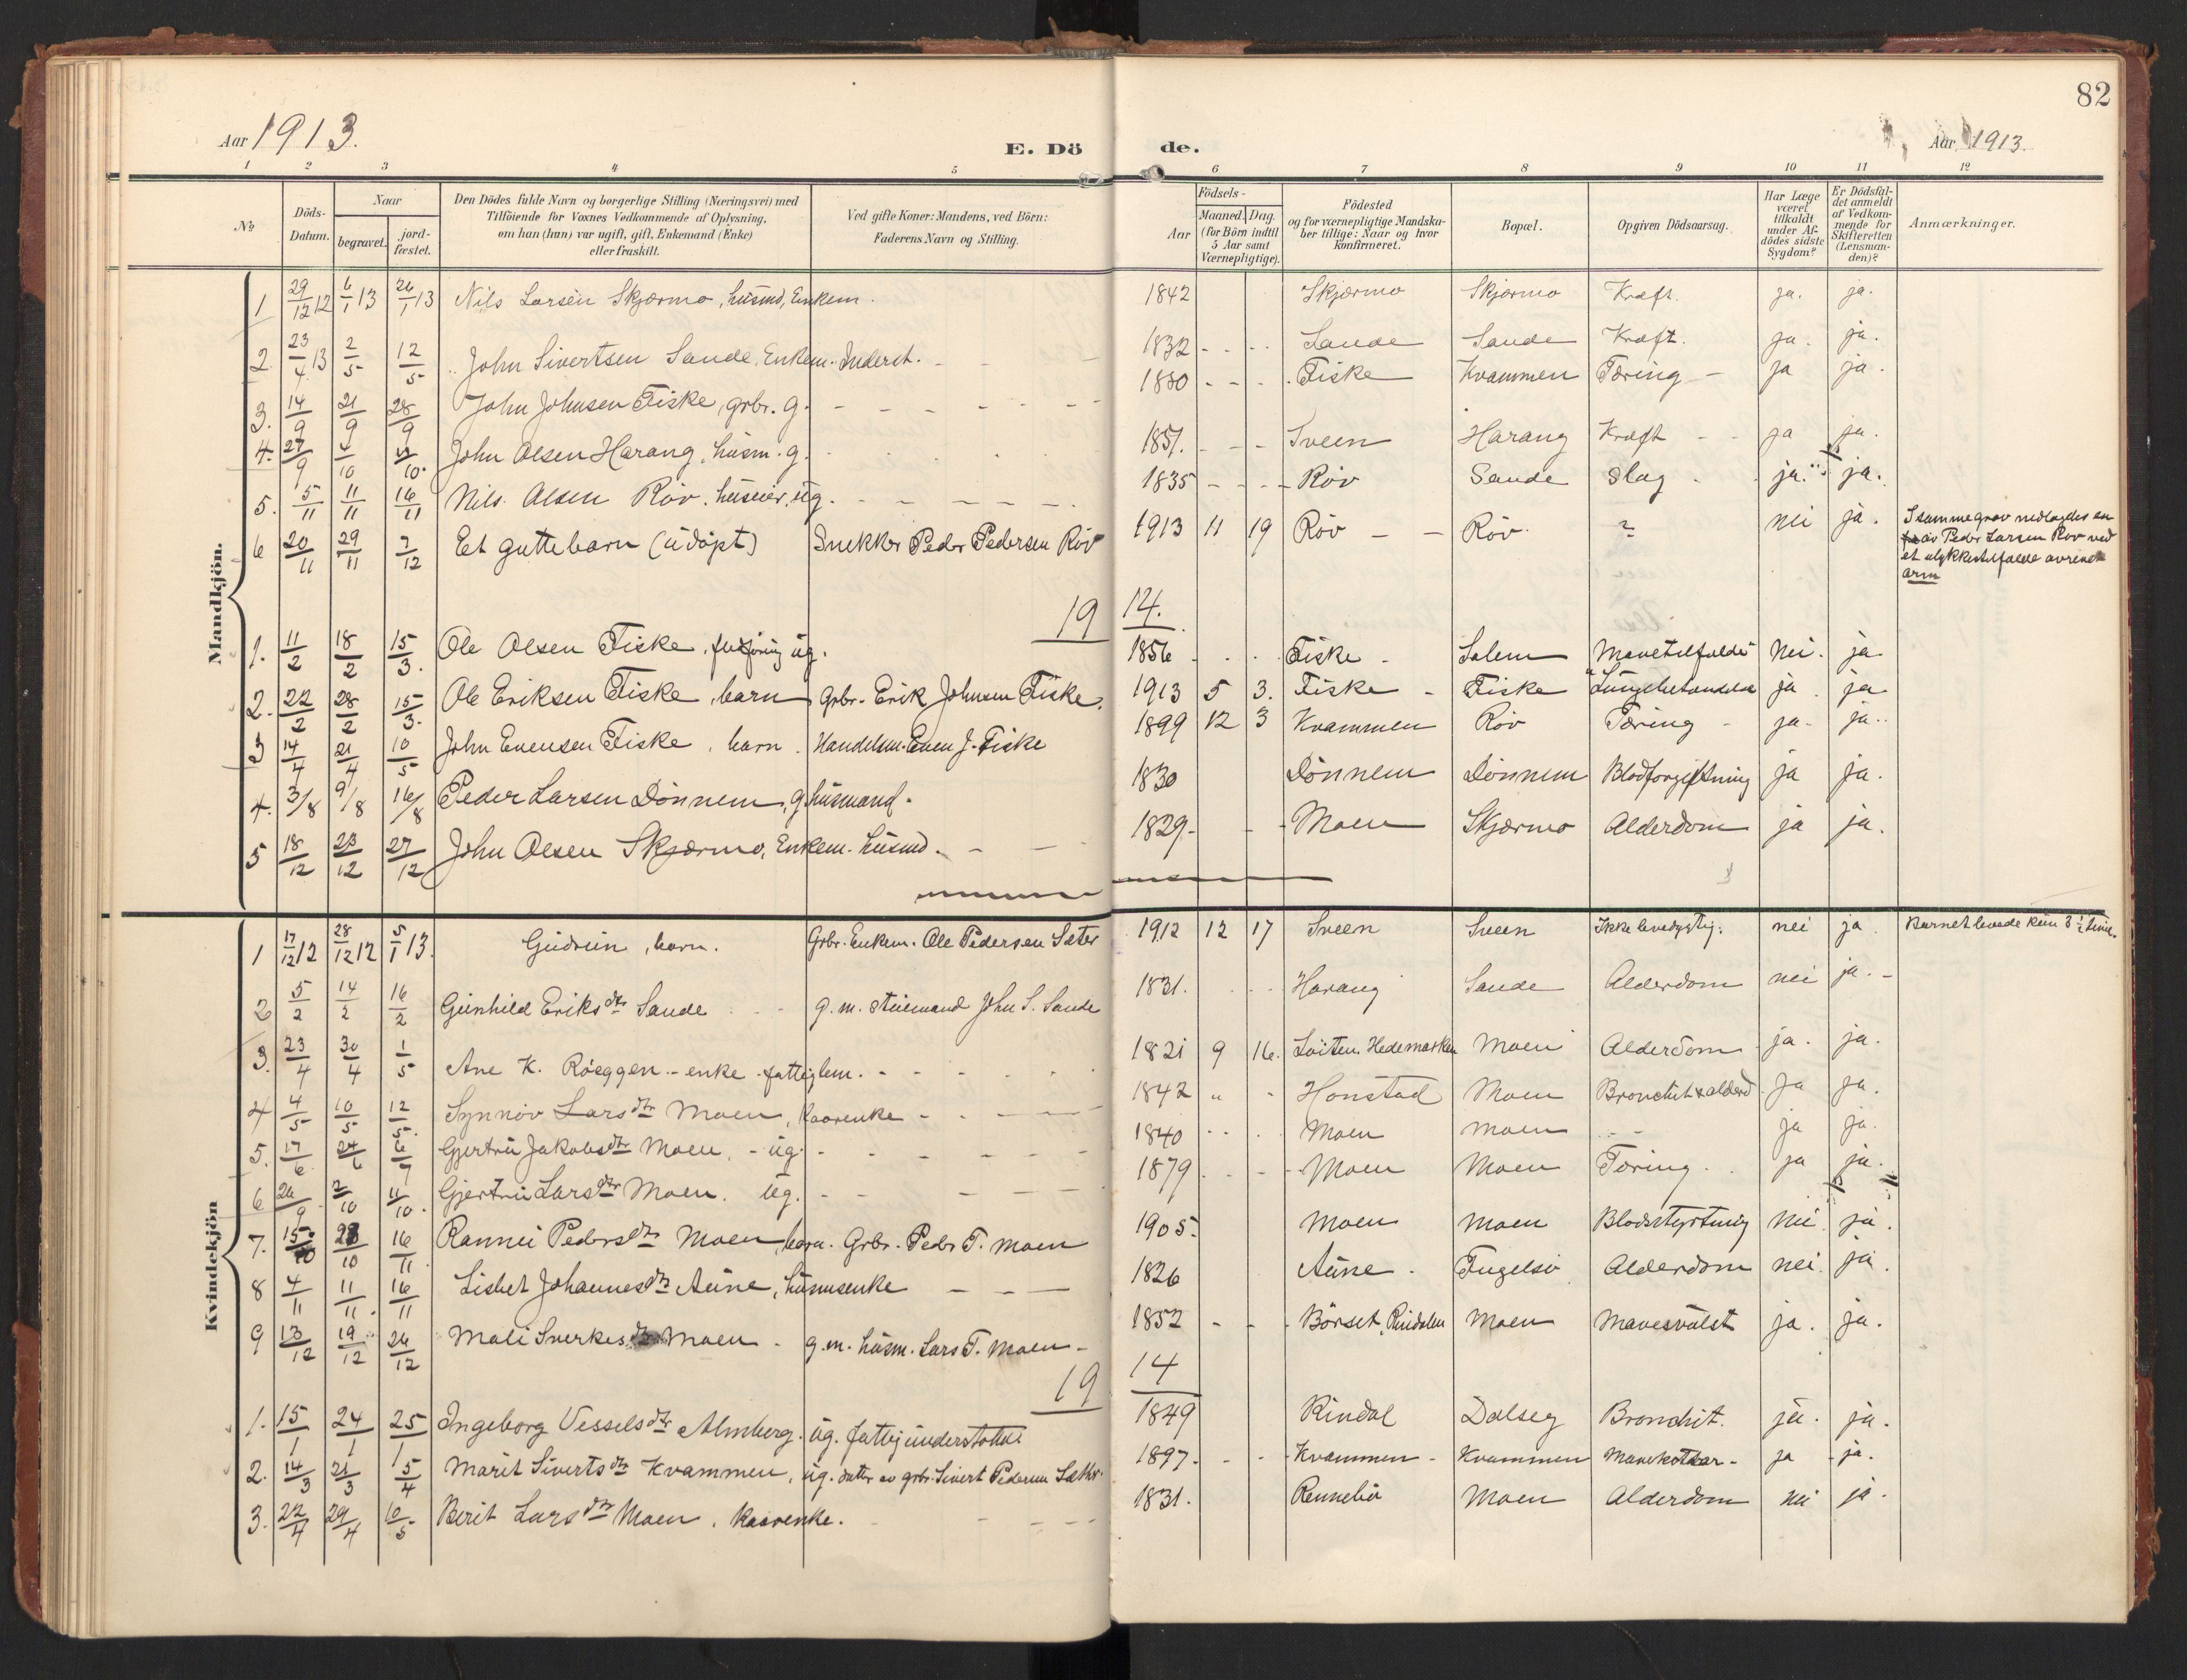 82
Aar 1913.
E. Dö de.
Aar 1913.
1 2 3 4 5 6 7 8 9 10 11 12
№
Döds-Datum.
Naar
begravet.
jord-fæstet.
Den Dödes fulde Navn og borgerlige Stilling (Næringsvei) med
Tilföiende for Voxnes Vedkommende af Oplysning,
om han (hun) var ugift, gift, Enkemand (Enke)
eller fraskilt.
Ved gifte Koner: Mandens, ved Börn:
Faderens Navn og Stilling.
Födsels-
Aar
Maaned. Dag.
(for Börn indtil
5 Aar samt
Værnepligtige).
Födested
og for værnepligtige Mandska-
ber tillige: Naar og hvor
konfirmeret.
Bopæl.
Opgiven Dödsaarsag.
Har Læge
været
tilkaldt
under Af-
dödes sidste
Sygdom?
Er Dödsfal-
det anmeldt
af Vedkom-
mende for
Skifteretten
(Lensman-
den)?
Anmærkninger.
Mandkjön.
1 29/12 12 6/1 13 26/1 13 Nils Larsen Skjærmo, husmd, Enkem. 1842 Skjærmo Skjærmo Kræft. ja. ja.
2. 23/4 13 2/5 12/5 John Sivertsen Sande, Enkem. Inderst. 1832 Sande Sande Kræft. ja. ja.
3. 14/9 21/9 28/9 John Johnsen Fiske, grbr. g. 1850 Fiske Kvammen Tæring ja ja.
4. 27/9 4/10 John Olsen Harang, husm. g. 1851. Sveen Harang Kræft ja ja.
5. 5/11 11/11 16/11 Nils Olsen Röv, huseier, ug. 1835 Röv Sande Slag ja. ja.
6 20/11 29/11 7/12 Et guttebarn (udöpt) Snekker Peder Pedersen Röv 1913 11 19 Röv Röv ? nei ja. I samme grav nedlagdes en
av Peder Larsen Röv ved
et ulykkestilfælde avrevet
arm
19 14.
1. 11/2 18/2 15/3. Ole Olsen Fiske, ug. 1856 Fiske Solem Mavetilfælde nei. ja
2. 22/2 28/2 15/3. Ole Eriksen Fiske, barn Grbr. Erik Johnsen Fiske. 1913 5 3. Fiske Fiske Lungebetændelse ja. ja
3 14/4 21/4 10/5 John Evensen Fiske, barn. Handelsm. Even J. Fiske 1899 12 3 Kvammen Röv Tæring ja. ja.
4. 3/8 9/8 16/8 Peder Larsen Dönnem, g. husmand. 1830 Dönnem Dönnem Blodforgiftning ja ja.
5 18/12 23/12 27/12 John Olsen Skjærmo, Enkem. husmd. 1829. Moen Skjærmo Alderdom ja ja.
Kvindekjön
1 17/12 12 28/12 12 5/1 13. Gudrun, barn. Grbr. Enkem. Ole Pedersen Sæter 1912 12 17 Sveen Sveen Ikke levedygtig. nei ja Barnet levede kun 3 1/2 time.
2 5/2 14/2 16/2 Gunhild Eriksdtr Sande g. m. stuemand John S. Sande 1831. Harang Sande Alderdom nei ja.
3. 23/4 30/4 1/5 Ane K. Röeggen - enke - fattiglem. 1821 9 16. Löiten Hedemarken Moen Alderdom ja. ja.
4 4/5 10/5 12/5. Synnöv Larsdtr Moen, kaarenke 1842 " Honstad Moen Bronchit & alderd. ja ja.
5. 17/6 24/6 6/7 Gjertru Jakobsdtr Moen, - ug. 1840 Moen Moen ja ja.
6 26/9 2/10 4/10. Gjertru Larsdtr Moen. ug. 1879 Moen Moen Tæring. ja ja.
7. 15/10 23/10 16/11 Rannei Pedersdtr Moen, barn. Grbr. Peder T. Moen 1905. Moen Moen Blodstyrtning nei. ja.
8 4/11 11/11. 16/11 Lisbet Johannesdtr Aune, husmsenke 1826 Aune Fugelsö Alderdom nei. ja.
9 13/12 19/12 26/12 Mali Sverkesdtr Moen g. m. husm. Lars T. Moen 1852 Börset, Rindalen Moen Mavesvulst ja. ja.
19 14
1. 15/1 24/1 25/1 Ingeborg Vesselsdtr Almberg. ug. fattigunderstöttet 1849 Rindal Dalseg Bronchit. ja. ja.
2. 14/3 21/3 5/4 Marit Sivertsdtr Kvammen, ug. datter av grbr. Sivert Pedersen Sæther 1897. Kvammen Kvammen Mavekatar ja ja.
3. 22/4 29/4 10/5 Berit Larsdtr Moen, kaarenke. 1831. Rennebu Moen Alderdom nei ja.